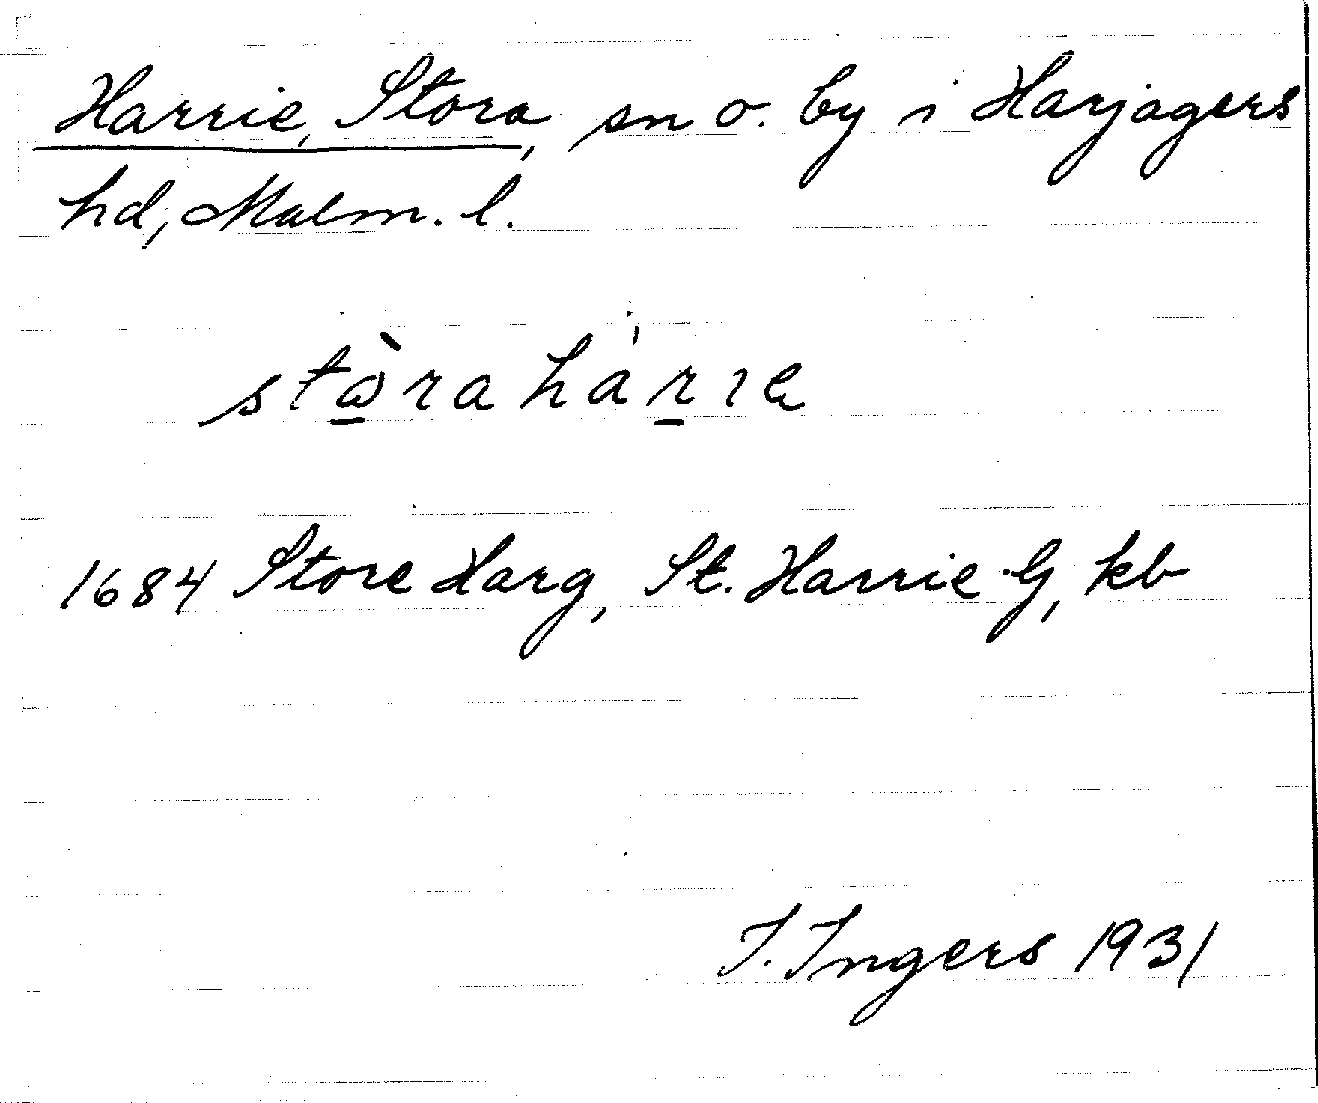 Harrie, Stora, sn o. by i Harjagers
hd, Malm. l.
stὼ̱ra há̍ṟıe
1684 Store Harg, St. Harrie G, kb
I. Ingers 1931